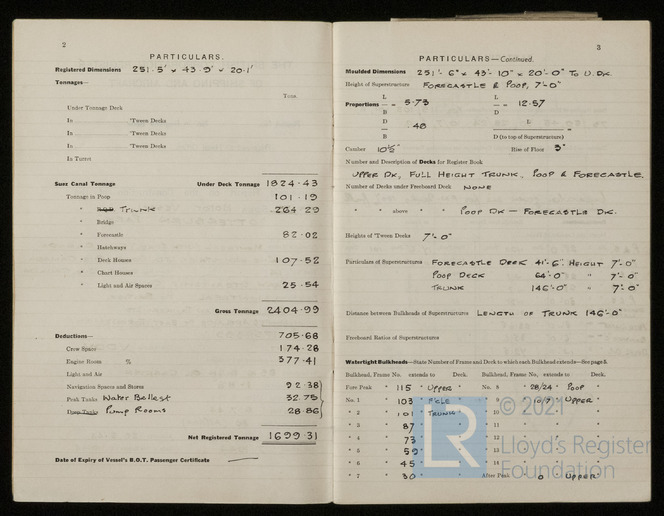 2
PARTICULARS.
Registered Dimensions 251·5' x 43·9' x 20·1'
Tonnages—
Tons.
Under Tonnage Deck
In 'Tween Decks
In 'Tween Decks
In 'Tween Decks
In Turret
Suez Canal Tonnage Under Deck Tonnage 1824·43
Tonnage in Poop 101·19
" Trunk 264 29
" Bridge
" Forecastle 82·02
" Hatchways
" Deck Houses 107·52
" Chart Houses
" Light and Air Spaces 25·54
Gross Tonnage 2404·99
Deductions— 705·68
Crew Space 174·28
Engine Room % 377·41
Light and Air
Navigation Spaces and Stores 92·38
Peak Tanks Water Ballast 32.75
Pump Rooms 28·86
Net Registered Tonnage 1699·31
Date of Expiry of Vessel's B.O.T. Passenger Certificate
3
PARTICULARS—Continued.
Moulded Dimensions 251'-6" x 43'-10" x 20'-0" TO U.DK.
Height of Superstructure FORECASTLE & POOP, 7'-0"
Proportions— L/B = 5·73 L/D = 12·57
D/B ·48 L/D (to top of Superstructure)
Camber 10½" Rise of Floor 3"
Number and Description of Decks for Register Book
UPPER DK, FULL HEIGHT TRUNK, POOP & FORECASTLE.
Number of Decks under Freeboard Deck NONE
" " above " " POOP DK — FORECASTLE DK.
Heights of 'Tween Decks 7'-0"
Particulars of Superstructures FORECASTLE DECK 41'-6" HEIGHT 7'-0"
POOP DECK 64'-0" " 7'-0"
TRUNK 146'-0" " 7'-0"
Distance between Bulkheads of Superstructures LENGTH OF TRUNK 146'-0"
Freeboard Ratios of Superstructures
Watertight Bulkheads—State Number of Frame and Deck to which each Bulkhead extends—See page 5.
Bulkhead, Frame No. extends to Deck. Bulkhead, Frame No. extends to Deck.
Fore Peak " 115 " UPPER " No. 8 " 28/24 " POOP "
No. 1 " 103 " F'CLE " 9 10/9 " UPPER "
" 2 " 101 " TRUNK " 10
" 3 " 87 "
" 4 " 73 "
" 5 " 59 "
" 6 " 45 " 14
" 7 " 30 " After Peak " 0 " UPPER "
© 2021
LR
Lloyd's Register
Foundation